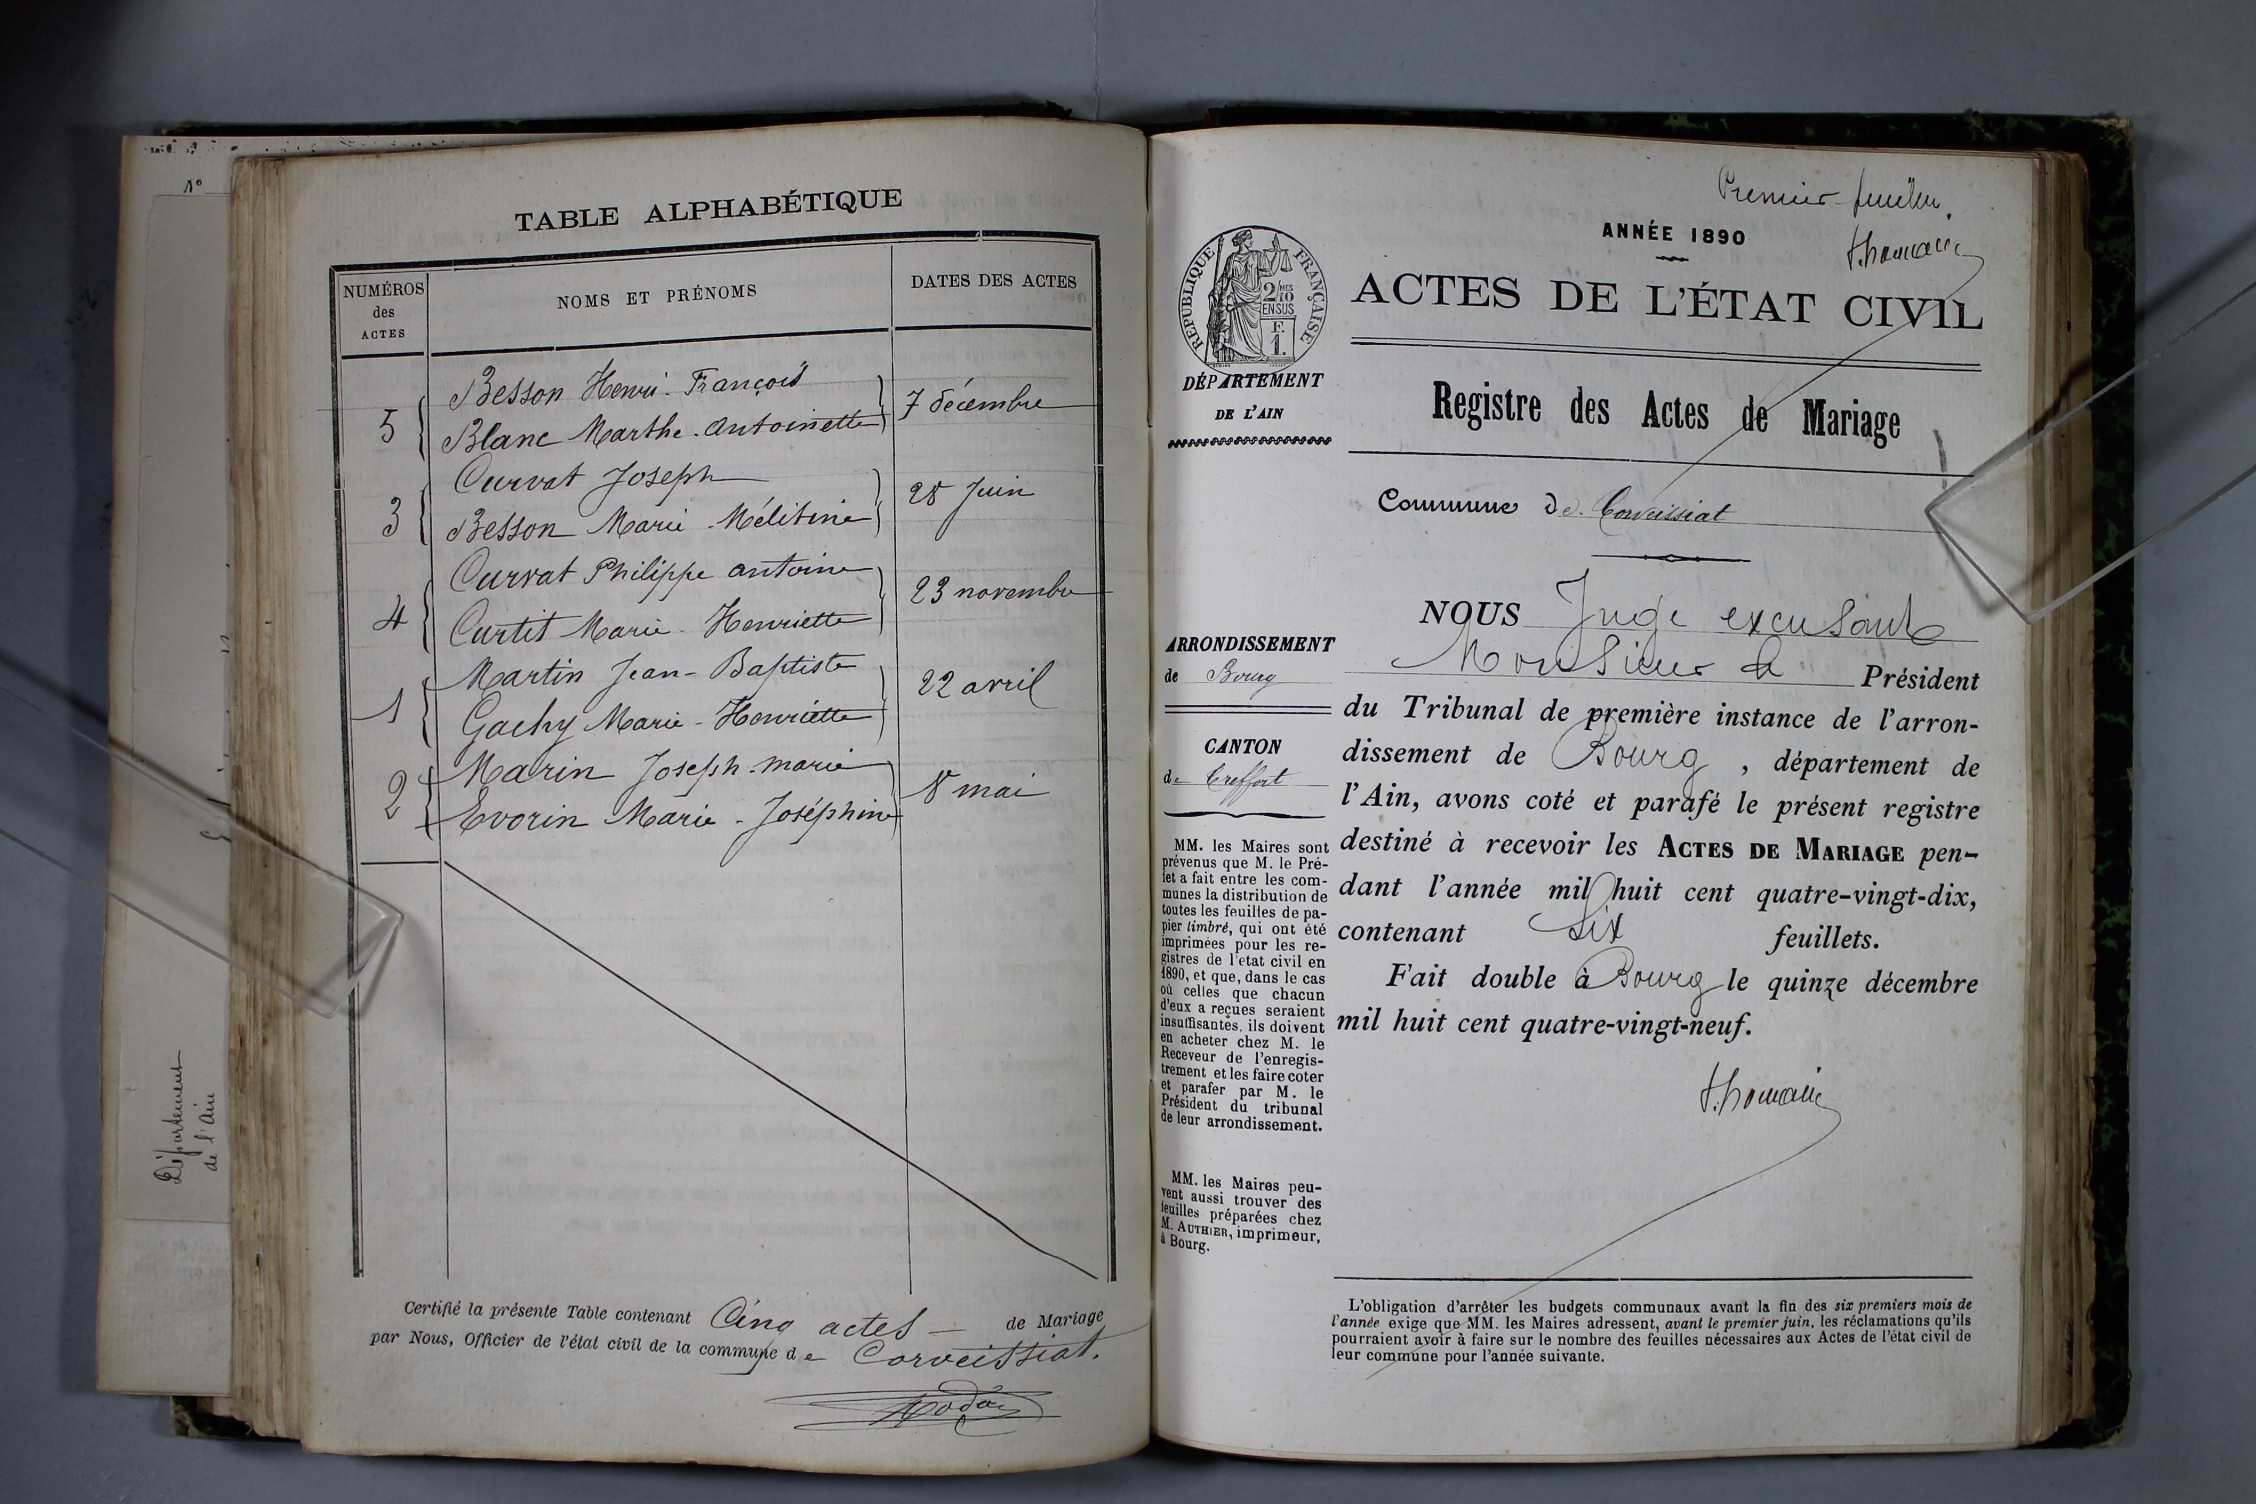 N°
Département
de l'Ain
TABLE ALPHABÉTIQUE
NUMÉROS
des
ACTES
NOMS ET PRÉNOMS
DATES DES ACTES
Besson Henri-François
5 7 décembre
Blanc Marthe-Antoinette
Curvat Joseph
3 28 Juin
Besson Marie-Mélitine
Curvat Philippe Antoine
4 23 novembre
Curtit Marie-Henriette
Martin Jean-Baptiste
1 22 avril
Gachy Marie-Henriette
Marin Joseph-Marie
2 8 mai
Evorin Marie-Joséphine
Certifié la présente Table contenant Cinq actes de Mariage
par Nous, Officier de l'état civil de la commune de Corveissiat.
Premier feuillet.
ANNÉE 1890
RÉPUBLIQUE FRANÇAISE
2/10 MES
EN SUS
F.
1.
ACTES DE L'ÉTAT CIVIL
DÉPARTEMENT
DE L'AIN
Registre des Actes de Mariage
Commune de Corveissiat
ARRONDISSEMENT
de Bourg
CANTON
de Treffort
MM. les Maires sont
prévenus que M. le Pré-
fet a fait entre les com-
munes la distribution de
toutes les feuilles de pa-
pier timbré, qui ont été
imprimées pour les re-
gistres de l'état civil en
1890, et que, dans le cas
où celles que chacun
d'eux a reçues seraient
insuffisantes, ils doivent
en acheter chez M. le
Receveur de l'enregis-
trement et les faire coter
et parafer par M. le
Président du tribunal
de leur arrondissement.
MM. les Maires peu-
vent aussi trouver des
feuilles préparées chez
M. AUTHIER, imprimeur,
à Bourg.
NOUS Juge excusant
Monsieur le Président
du Tribunal de première instance de l'arron-
dissement de Bourg, département de
l'Ain, avons coté et parafé le présent registre
destiné à recevoir les ACTES DE MARIAGE pen-
dant l'année mil huit cent quatre-vingt-dix,
contenant Six feuillets.
Fait double à Bourg le quinze décembre
mil huit cent quatre-vingt-neuf.
L'obligation d'arrêter les budgets communaux avant la fin des six premiers mois de
l'année exige que MM. les Maires adressent, avant le premier juin, les réclamations qu'ils
pourraient avoir à faire sur le nombre des feuilles nécessaires aux Actes de l'état civil de
leur commune pour l'année suivante.